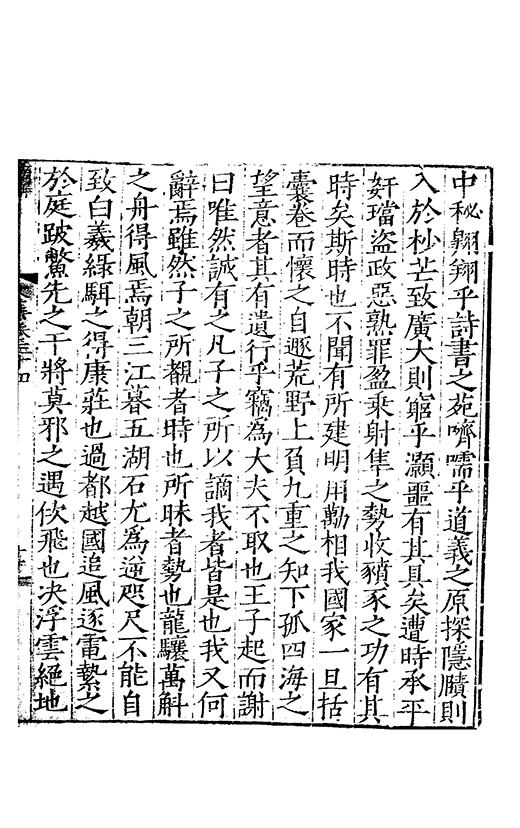 中秘翱翔乎詩書之苑嚌嚅乎道義之原探隱賾則
入於杪芒致廣大則窮乎灝噩有其具矣遭時承平
奸璫盜政惡熟罪盈乘射隼之勢收豶豕之功有其
時矣斯時也不聞有所建明用勱相我國家一旦括
囊卷而懷之自遯荒野上負九重之知下孤四海之
望意者其有遺行乎竊為大夫不取也王子起而謝
曰唯然誠有之凡子之所以謫我者皆是也我又何
辭焉雖然子之所覩者時也所昧者勢也龍驤萬斛
之舟得風焉朝三江暮五湖石尤為逆咫尺不能自
致白義綠駬之得康莊也過都越國追風逐電縶之
於庭跛鱉先之干將莫邪之遇佽飛也決浮雲絕地